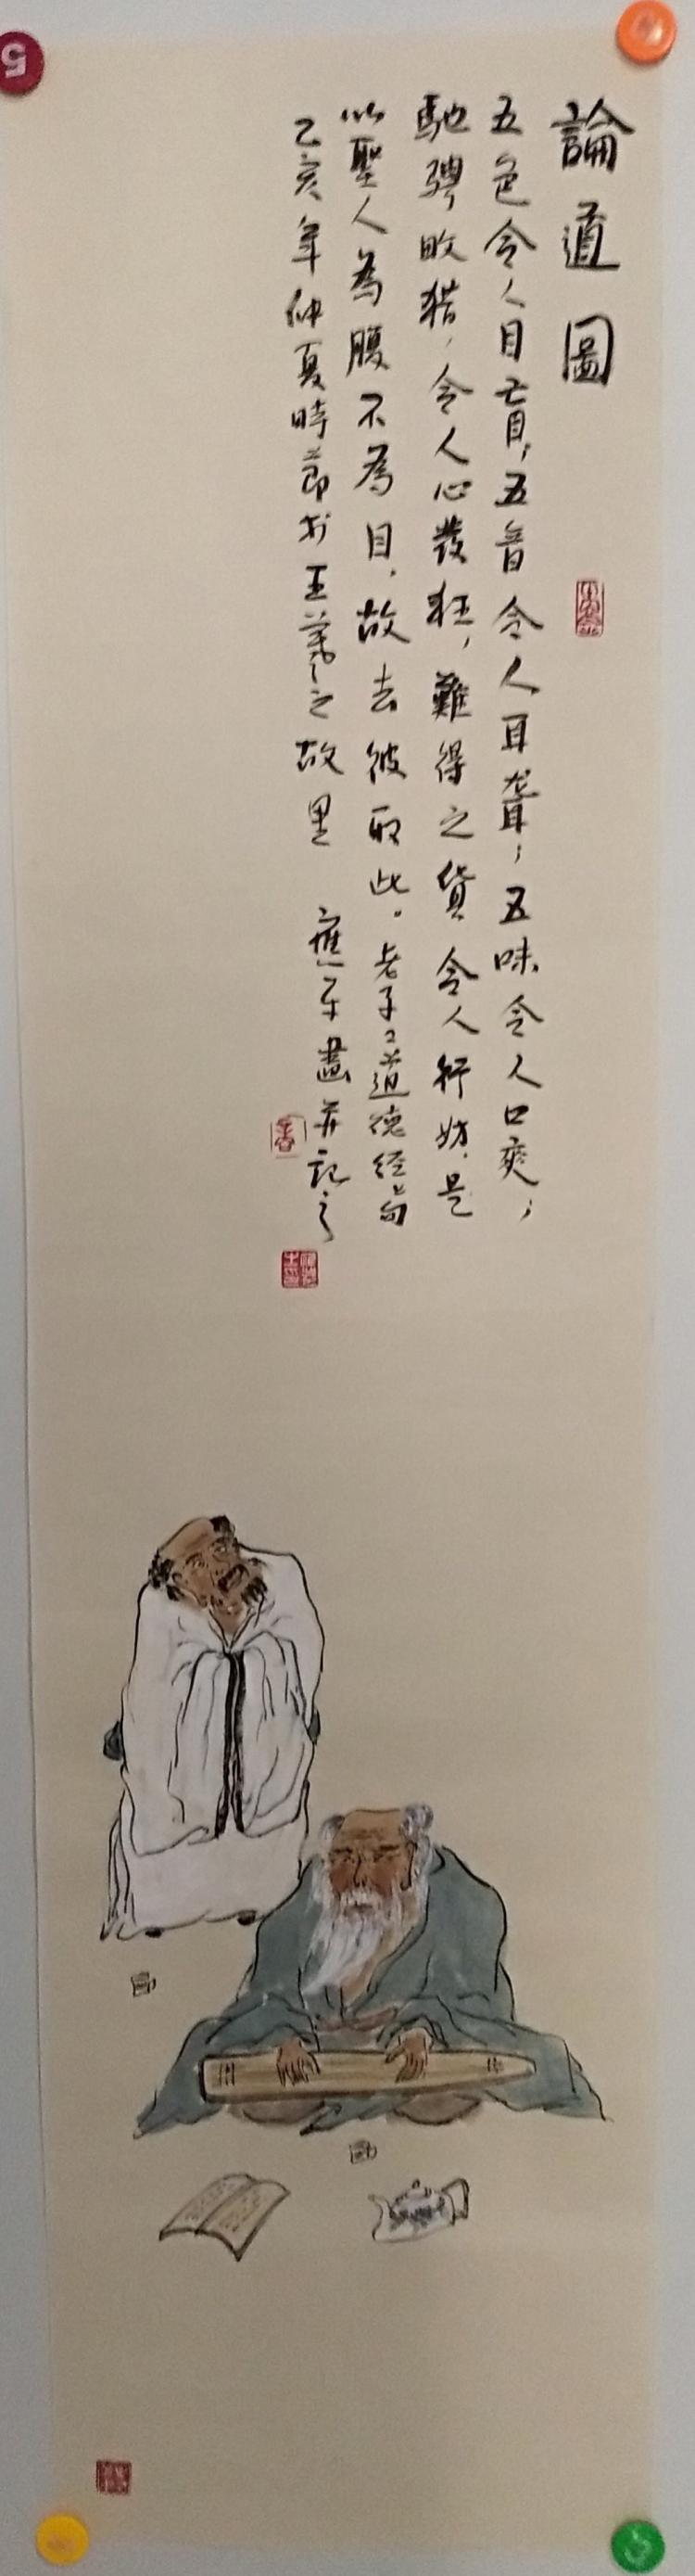 論道圖
五色令人目盲,五音令人耳聋;五味令人口爽;
馳騁畋猎,令人心發狂,難得之貨令人行妨.是
以聖人為腹不為目.故去彼取此。老子道德经句
乙亥年仲夏時節於王羲之故里 畫并記之
5